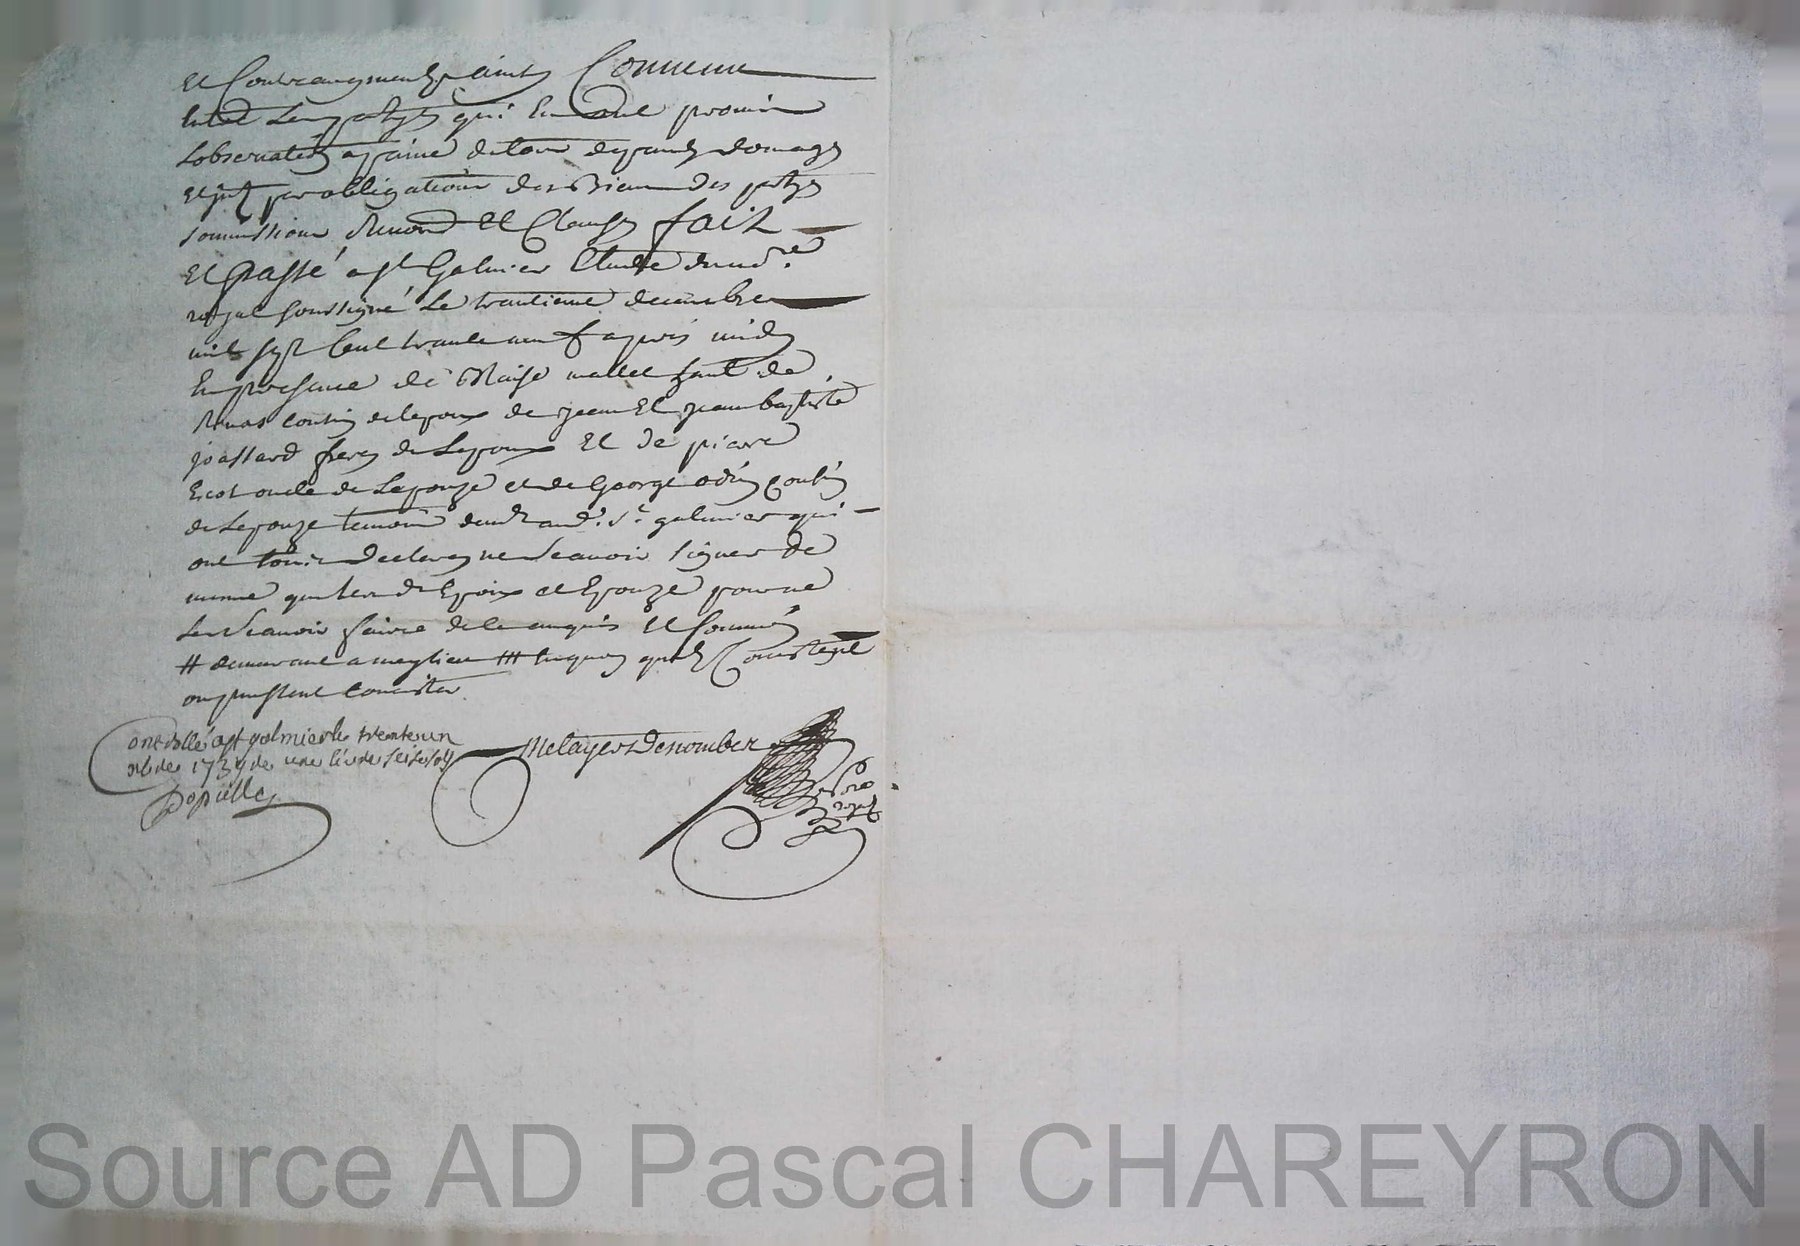 et contrangment ainsy convenu
entre les partyes qui en ont promis
lobservation a paine de tous depands domages
et par obligations des Biens des partyes
soumissions Renond et Clauses fait
et passé a st Galmier Etude du no.re
royal soussigné Le trantieme decembre
mil sept cent trante neuf apres midy
En presence de Blaise mallet de
Rivas cousin de lepoux de jean Et jean baptiste
joassard freres de Lepoux Et de piere
Escot oncle de Lepouze et de George odin cousin
de Lepouze temoins aud. st galmier qui
ont tous declares ne Scavoir signer de
meme que les d Epoix et Epouze pour ne
Le Scavoir faire de ce enquis et sommés
# demeurant a meylieu ### enquoy quils Concistent
ou puissent concister
controllé a st galmier le trente un
xbre 1739 de une livre seise sols
Populle
Melayer Denombez
no.re
royal
Source AD Pascal CHAREYRON